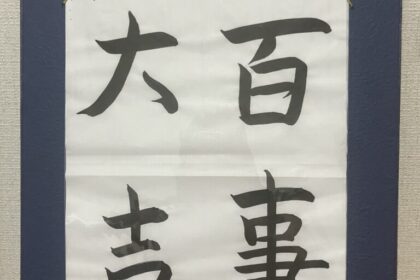 百事
大吉